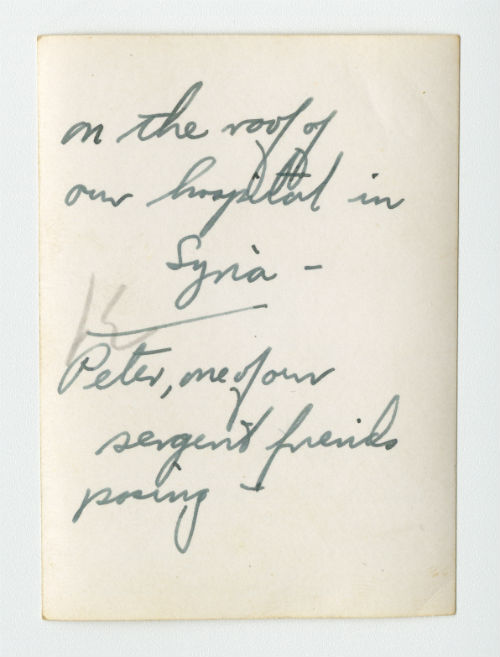 on the roof of
our hospital in
Syria -
Peter, one of our
sergent friends
posing -